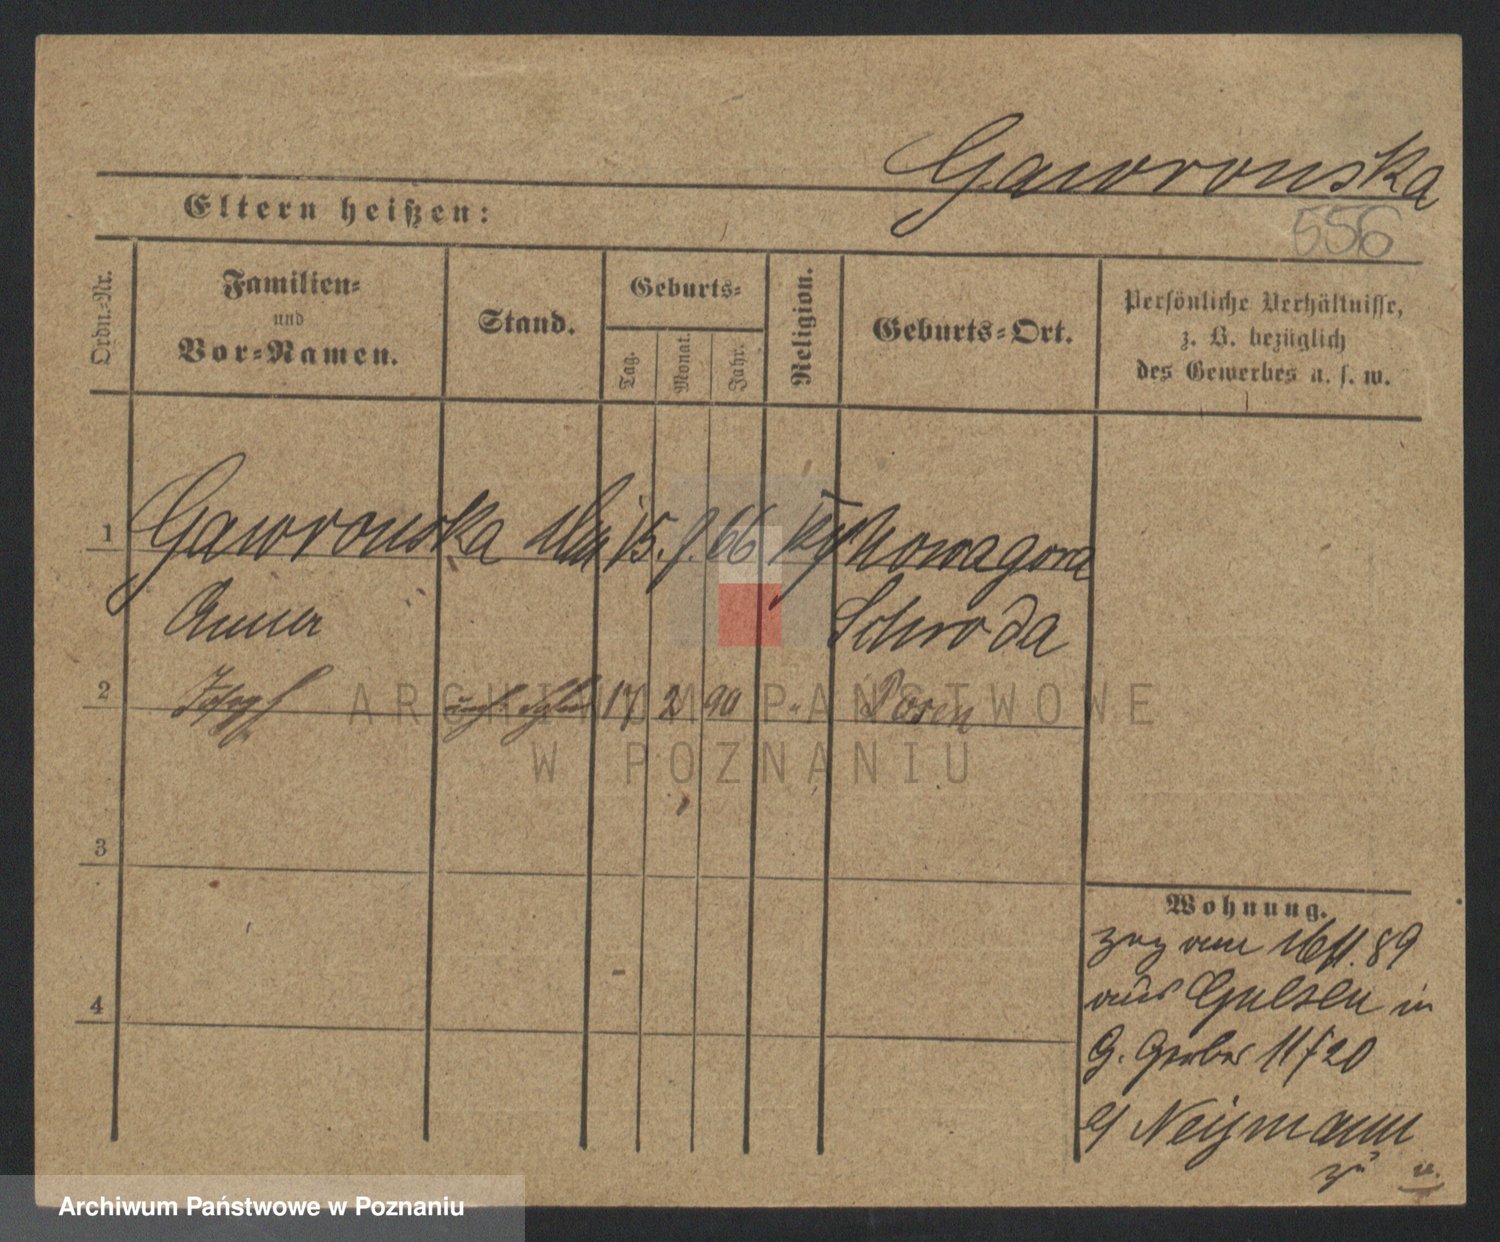 Gaworonska
556
Eltern heißen:
Ordn.-Nr.
Familien-
und
Vor-Namen.
Stand.
Geburts-
Tag.
Monat.
Jahr.
Religion.
Geburts-Ort.
Persönliche Verhältnisse,
z. B. bezüglich
des Gewerbes u. s. w.
1 Gaworonska 15. 66 Nowagora
Anna Schroda
2 Joseph 17 2 90 " Posen
3
4
Wohnung.
zog am 16/11. 89
aus Gulsen in
G. Gerber 11/20
Neizmann
u.
ARCHIWUM PAŃSTWOWE
W POZNANIU
Archiwum Państwowe w Poznaniu